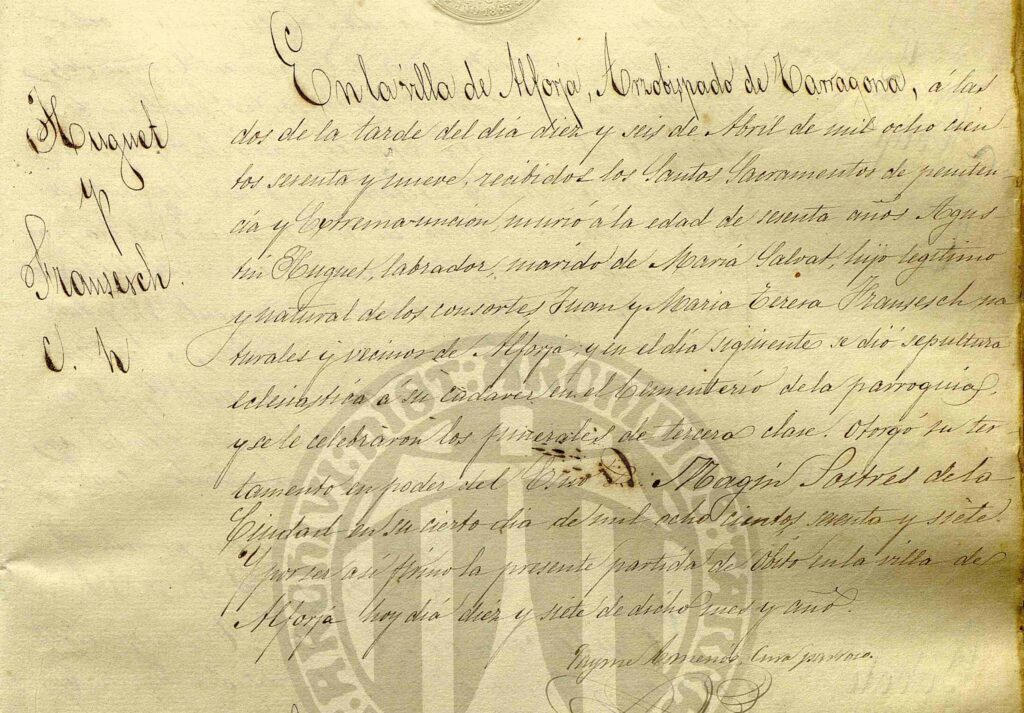 Huguet
y
Fransesch.
C. h.
En la villa de Alforja, Arzobispado de Tarragona, á las
dos de la tarde del dia diez y seis de Abril de mil ocho cien-
tos sesenta y nueve, recibidos los Santos Sacramentos de peniten-
cia y Extrema-uncion, murió á la edad de sesenta años Agus-
tin Huguet, labrador, marido de Maria Salvat, hijo legítimo
y natural de los consortes Juan y Maria Teresa Fransesch na-
turales y vecinos de Alforja, y en el dia siguiente se dió sepultura
eclesiastica a su cadaver en el Cementerio de la parroquia,
y se le celebraron los funerales de tercera clase. Otorgó su tes-
tamento en poder del D. Magin Sostres de la
Ciudad en su cierto dia de mil ocho cientos sesenta y siete.
Y por ser asi firmo la presente partida de óbito en la villa de
Alforja hoy dia diez y siete de dicho mes y año.
Jayme Cura parroco.
ARXIU HIST. ARXIDIOC